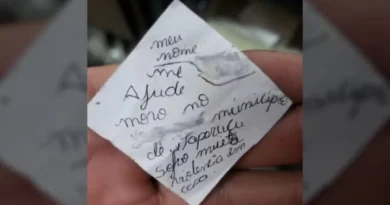 meu
nome
me
Ajude
moro no município
de Itaporucu
sofro muita
violencia em
casa